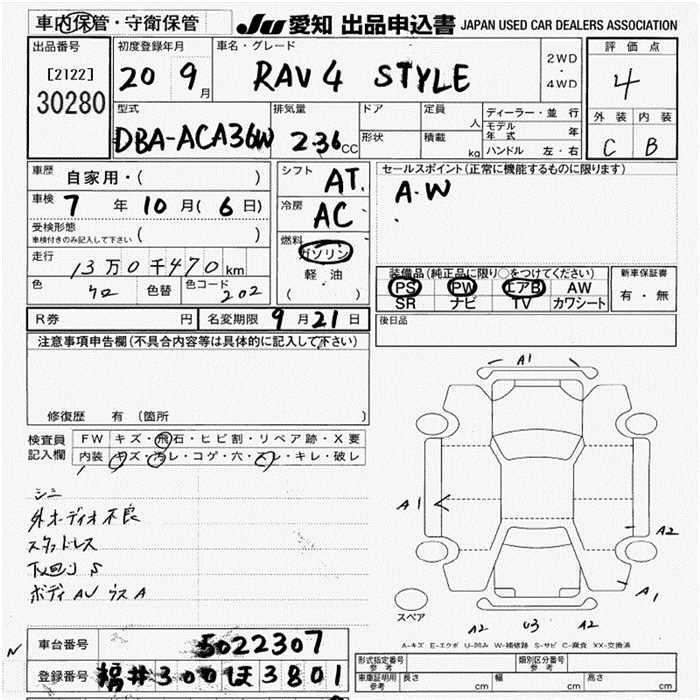 車内保管・守衛保管
JU 愛知 出品申込書 JAPAN USED CAR DEALERS ASSOCIATION
出品番号
[2122]
30280
初度登録年月
20 9月
車名・グレード
RAV4 STYLE
2WD
・
4WD
評価点
4
外装 内装
C B
型式
DBA-ACA36W
排気量
2.36cc
ドア
形状
定員 人
積載 kg
ディーラー・並行
モデル年式 年
ハンドル 左・右
車歴
自家用・( )
車検 7年 10月( 6日)
受検形態
車検付きのみ記入して下さい ( )
走行
13万0千470km
色 クロ 色替 色コード 202
シフト AT
冷房 AC
燃料
ガソリン
軽・油
( )
セールスポイント(正常に機能するものに限ります)
A.W
装備品(純正品に限り○をつけてください)
PS PW エアB AW
SR ナビ TV カワシート
新車保証書
有・無
R券 円 名変期限 9月21日
後日品
注意事項申告欄(不具合内容等は具体的に記入して下さい)
修復歴 有(箇所 )
検査員記入欄
FW キズ・飛石・ヒビ割・リペア跡・X要
内装 キズ・汚レ・コゲ・穴・スレ・キレ・破レ
シミ
外オーディオ不良
スタッドレス
下回り S
ボディ AU ウス A
A1
A1
A2
A1
スペア
A2 U3 A2
A-キズ E-エクボ U-凹み W-補修跡 S-サビ C-腐食 XX-交換済
N
車台番号 5022307
登録番号 福井300ほ3801
形式指定番号 参考
類別区分番号 参考
車庫証明用 参考 長さ cm 幅 cm 高さ cm